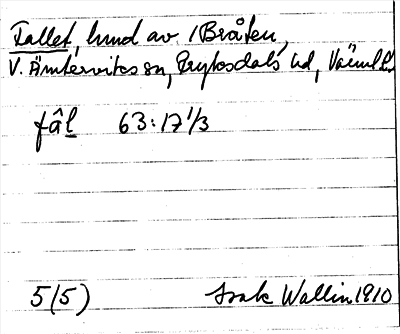 Tallet, hmd av /Bråten,
V. Ämterviks sn, Fryksdals hd, Värml.l.
fâl 63:17 1/3
5(5) Isak Wallin 1910